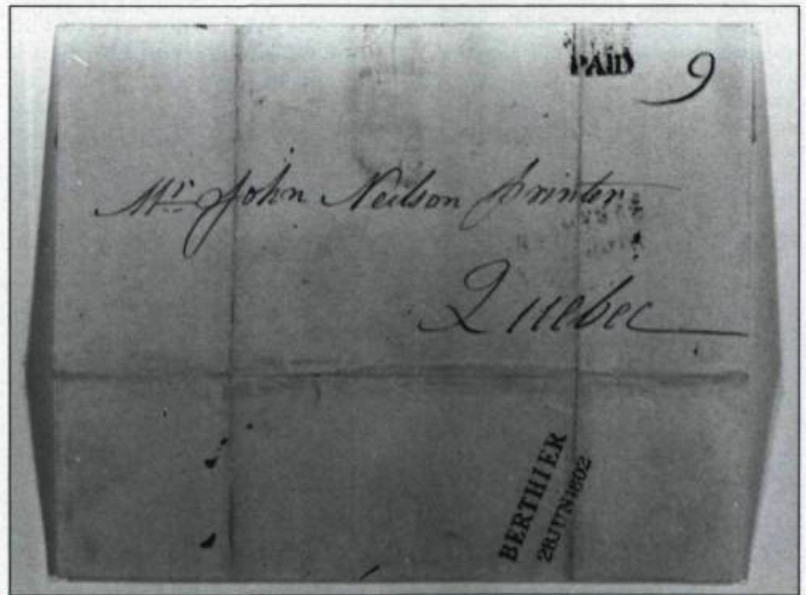 PAID 9
Mr. John Neilson Printer
Quebec
BERTHIER
28JUN1802